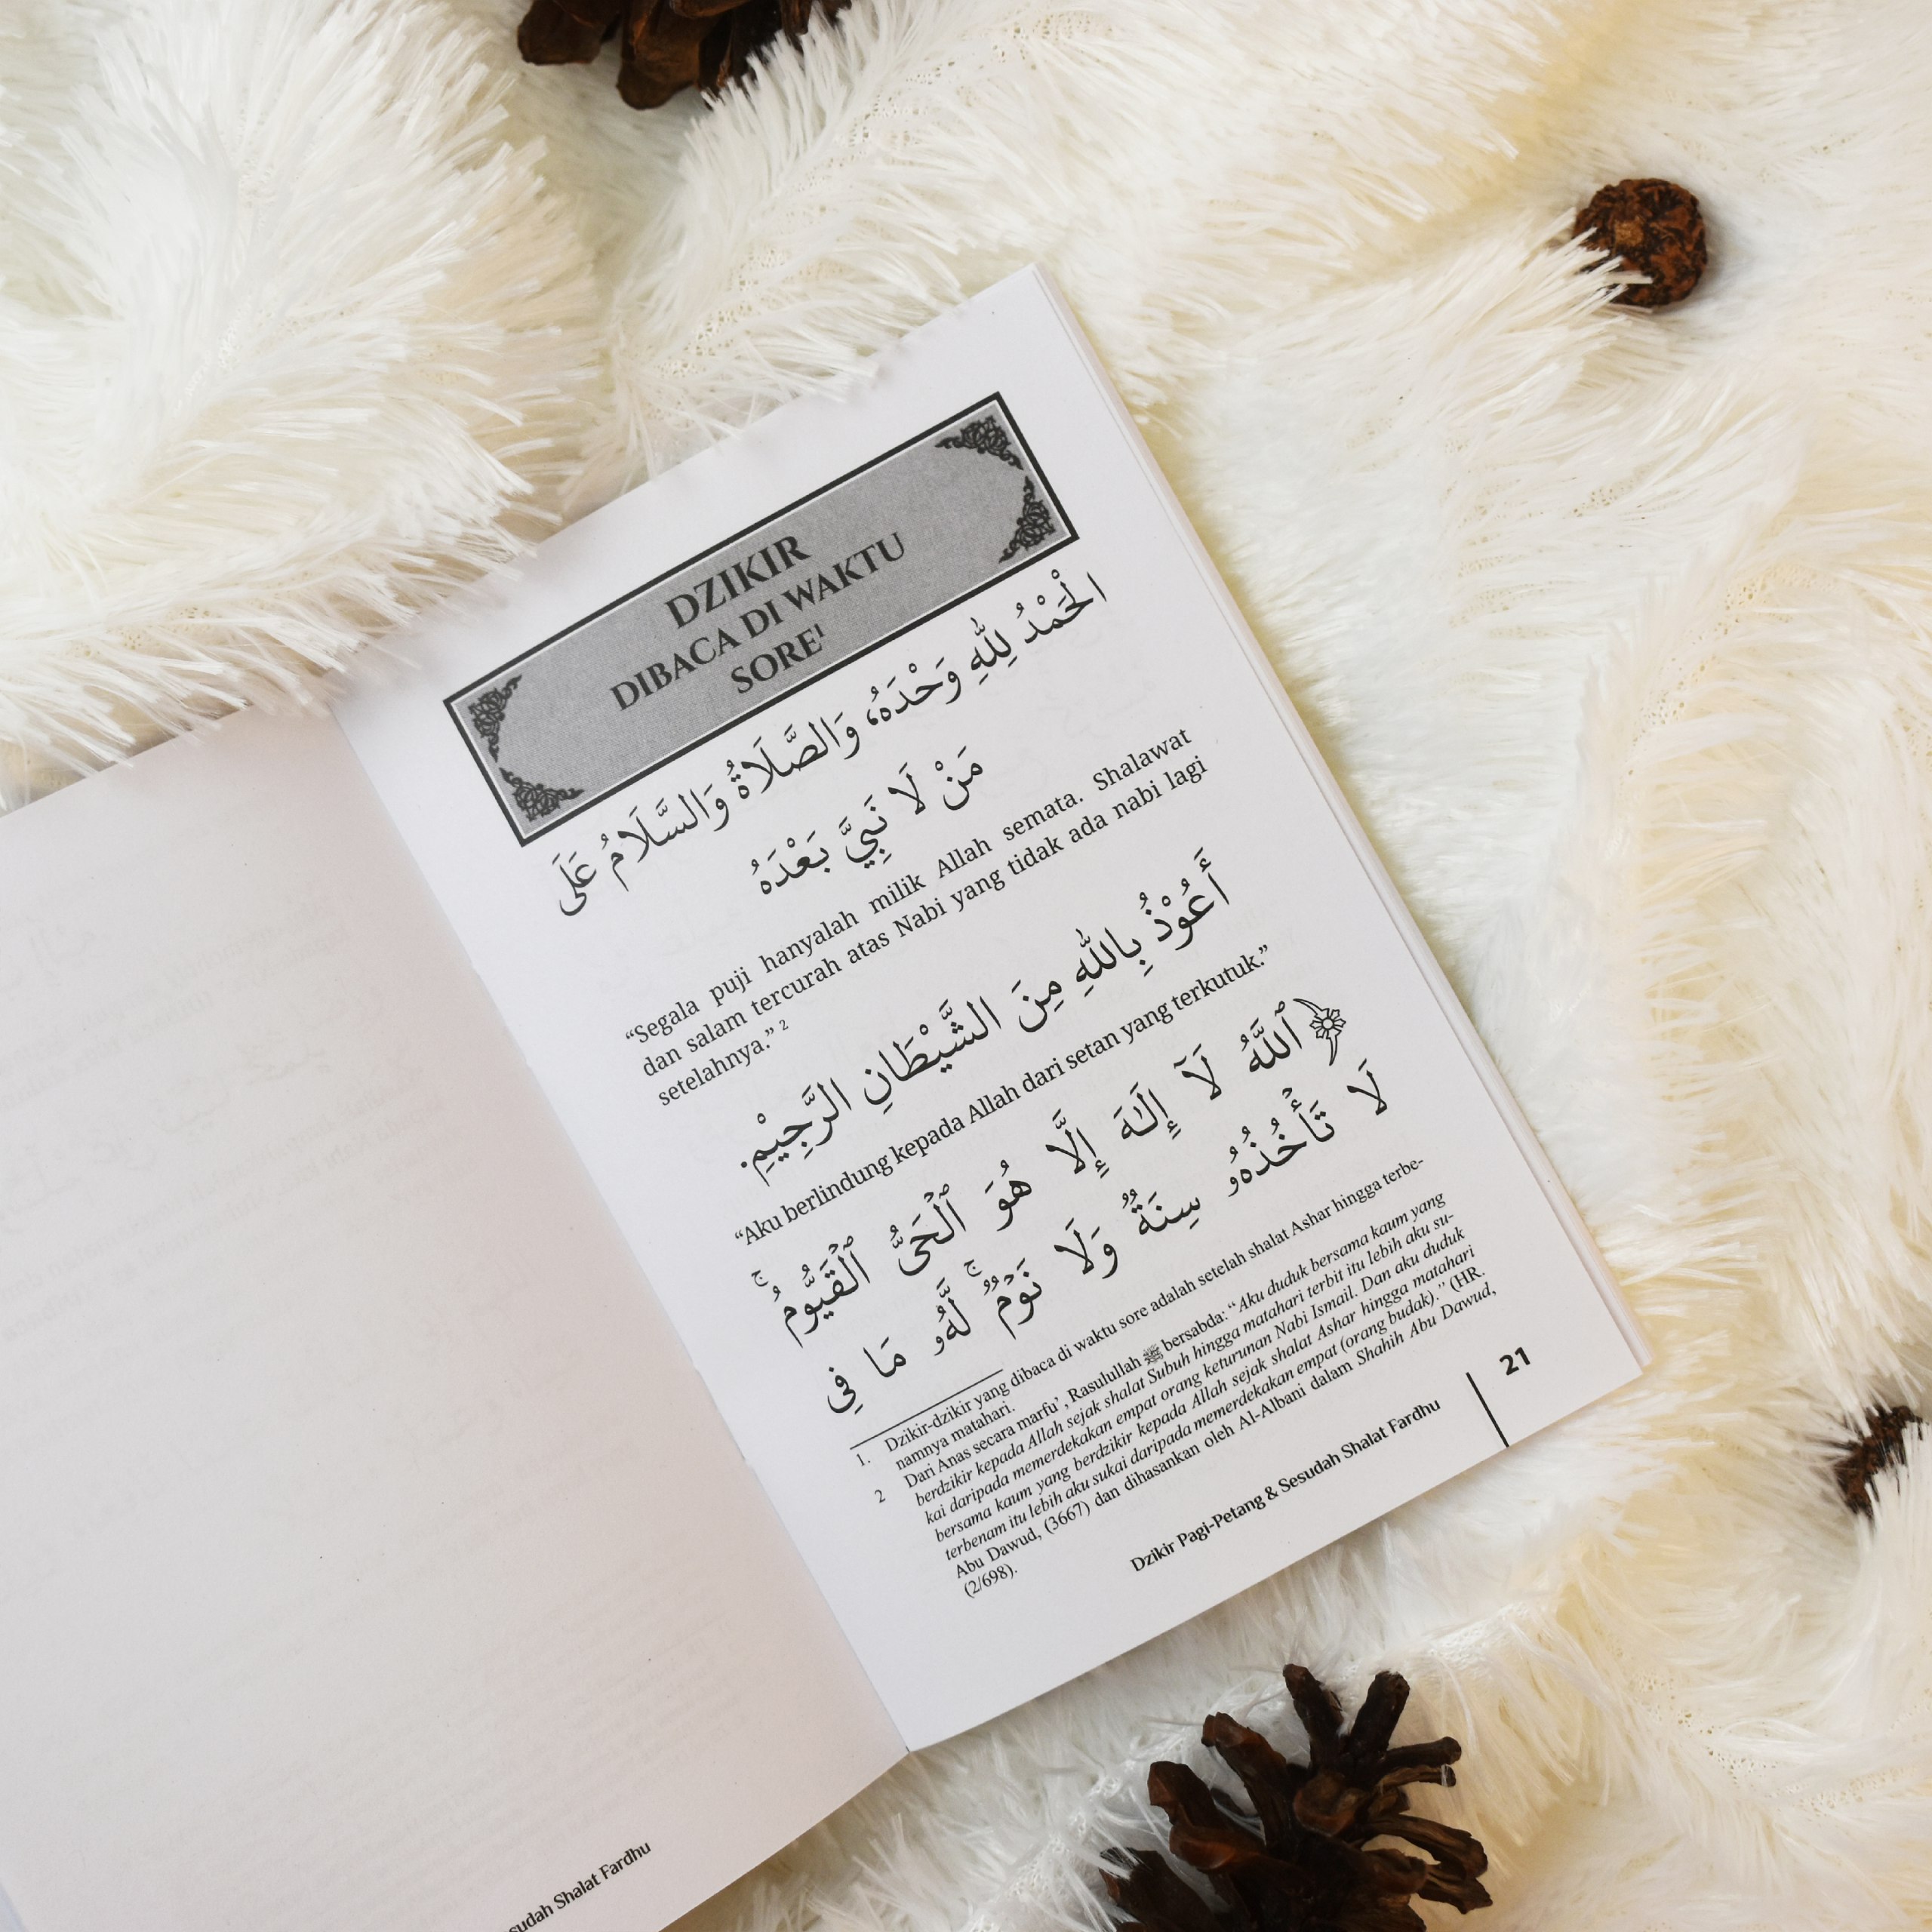 DZIKIR
DIBACA DI WAKTU
SORE¹
الْحَمْدُ لِلّٰهِ وَحْدَهُ، وَالصَّلَاةُ وَالسَّلَامُ عَلَى
مَنْ لَا نَبِيَّ بَعْدَهُ
“Segala puji hanyalah milik Allah semata. Shalawat
dan salam tercurah atas Nabi yang tidak ada nabi lagi
setelahnya.” ²
أَعُوْذُ بِاللّٰهِ مِنَ الشَّيْطَانِ الرَّجِيْمِ.
“Aku berlindung kepada Allah dari setan yang terkutuk.”
ٱللَّهُ لَآ إِلَـٰهَ إِلَّا هُوَ ٱلْحَىُّ ٱلْقَيُّومُ ۚ
لَا تَأْخُذُهُۥ سِنَةٌ وَلَا نَوْمٌ ۚ لَّهُۥ مَا فِى
1. Dzikir-dzikir yang dibaca di waktu sore adalah setelah shalat Ashar hingga terbe-
namnya matahari.
2 Dari Anas secara marfu’, Rasulullah ﷺ bersabda: “Aku duduk bersama kaum yang
berdzikir kepada Allah sejak shalat Subuh hingga matahari terbit itu lebih aku su-
kai daripada memerdekakan empat orang keturunan Nabi Ismail. Dan aku duduk
bersama kaum yang berdzikir kepada Allah sejak shalat Ashar hingga matahari
terbenam itu lebih aku sukai daripada memerdekakan empat (orang budak).” (HR.
Abu Dawud, (3667) dan dihasankan oleh Al-Albani dalam Shahih Abu Dawud,
(2/698).
Dzikir Pagi-Petang & Sesudah Shalat Fardhu
21
sudah Shalat Fardhu